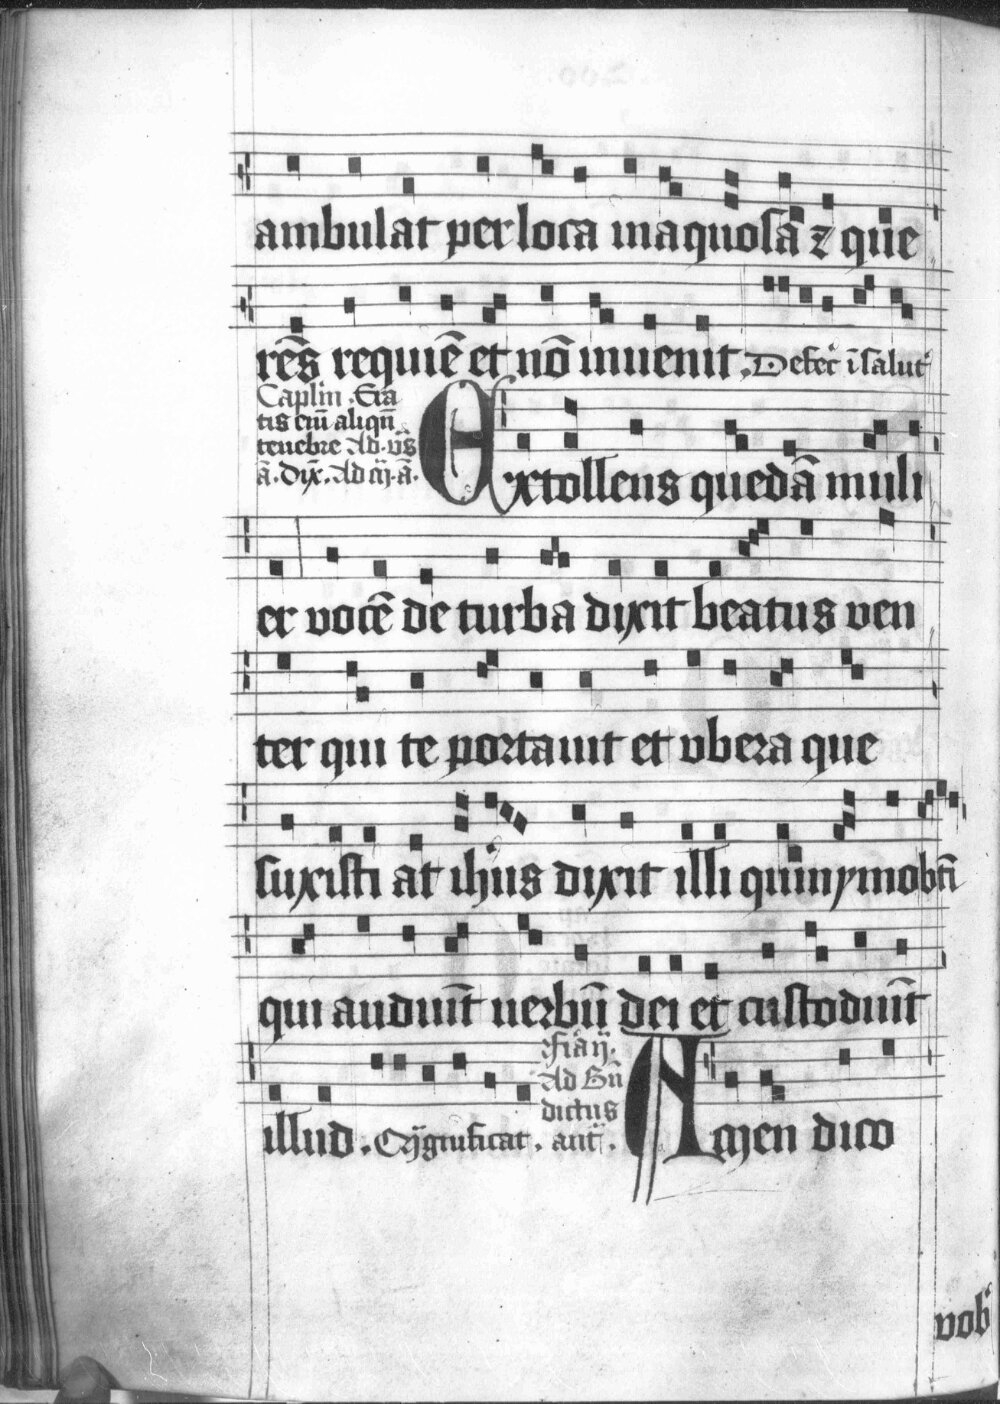 ambulat per loca inaquosa ⁊ que
rēs requiē et nō inuenit. Defec̄ ī salut̄
Caplm̄. Era
tis em̄ aliqn̄
tenebre Ad vs̄
ā. Dix̄. Ad mā.
Extollens quedā muli
er vocē de turba dixit beatus ven
ter qui te portauit et vbera que
suxisti at ihūs dixit illi quinymo bt̄i
qui audiūt uerbū dei et custodiūt
illud. Mgnificat. ant̄.
Fīa ij.
Ad Bn̄
dictus
Amen dico
vob̄